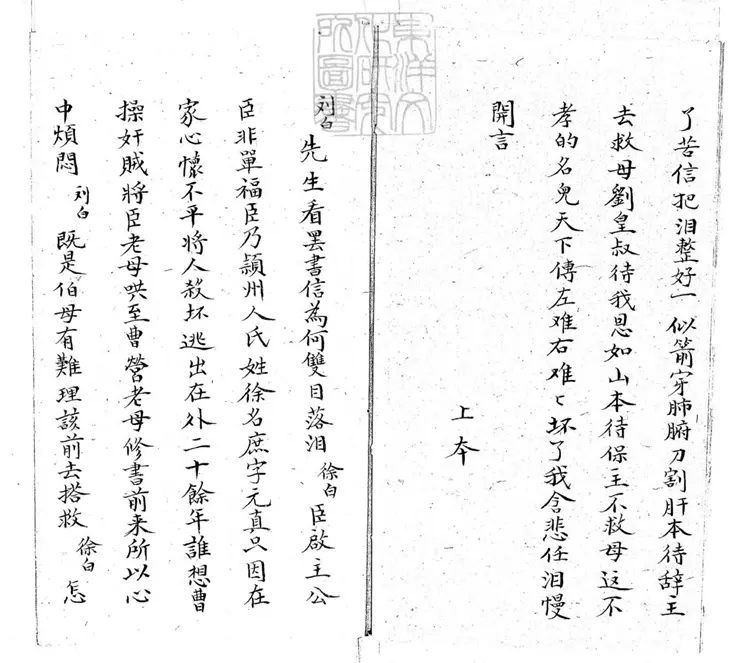 了苦信把泪整好一似箭穿肺腑刀割肝本待辞主
去救母劉皇叔待我恩如山本待保主不救母这不
孝的名兒天下傳左难右难〻坏了我含悲任泪慢
開言
上本
刘白 先生看罢書信為何雙目落泪 徐白 臣啟主公
臣非單福臣乃颍州人氏姓徐名庶字元真只因在
家心懷不平将人殺坏逃出在外二十餘年誰想曹
操奸賊将臣老母哄至曹營老母修書前来所以心
中煩悶 刘白 既是伯母有難理該前去搭救 徐白 怎
東洋文
化研究
所圖書